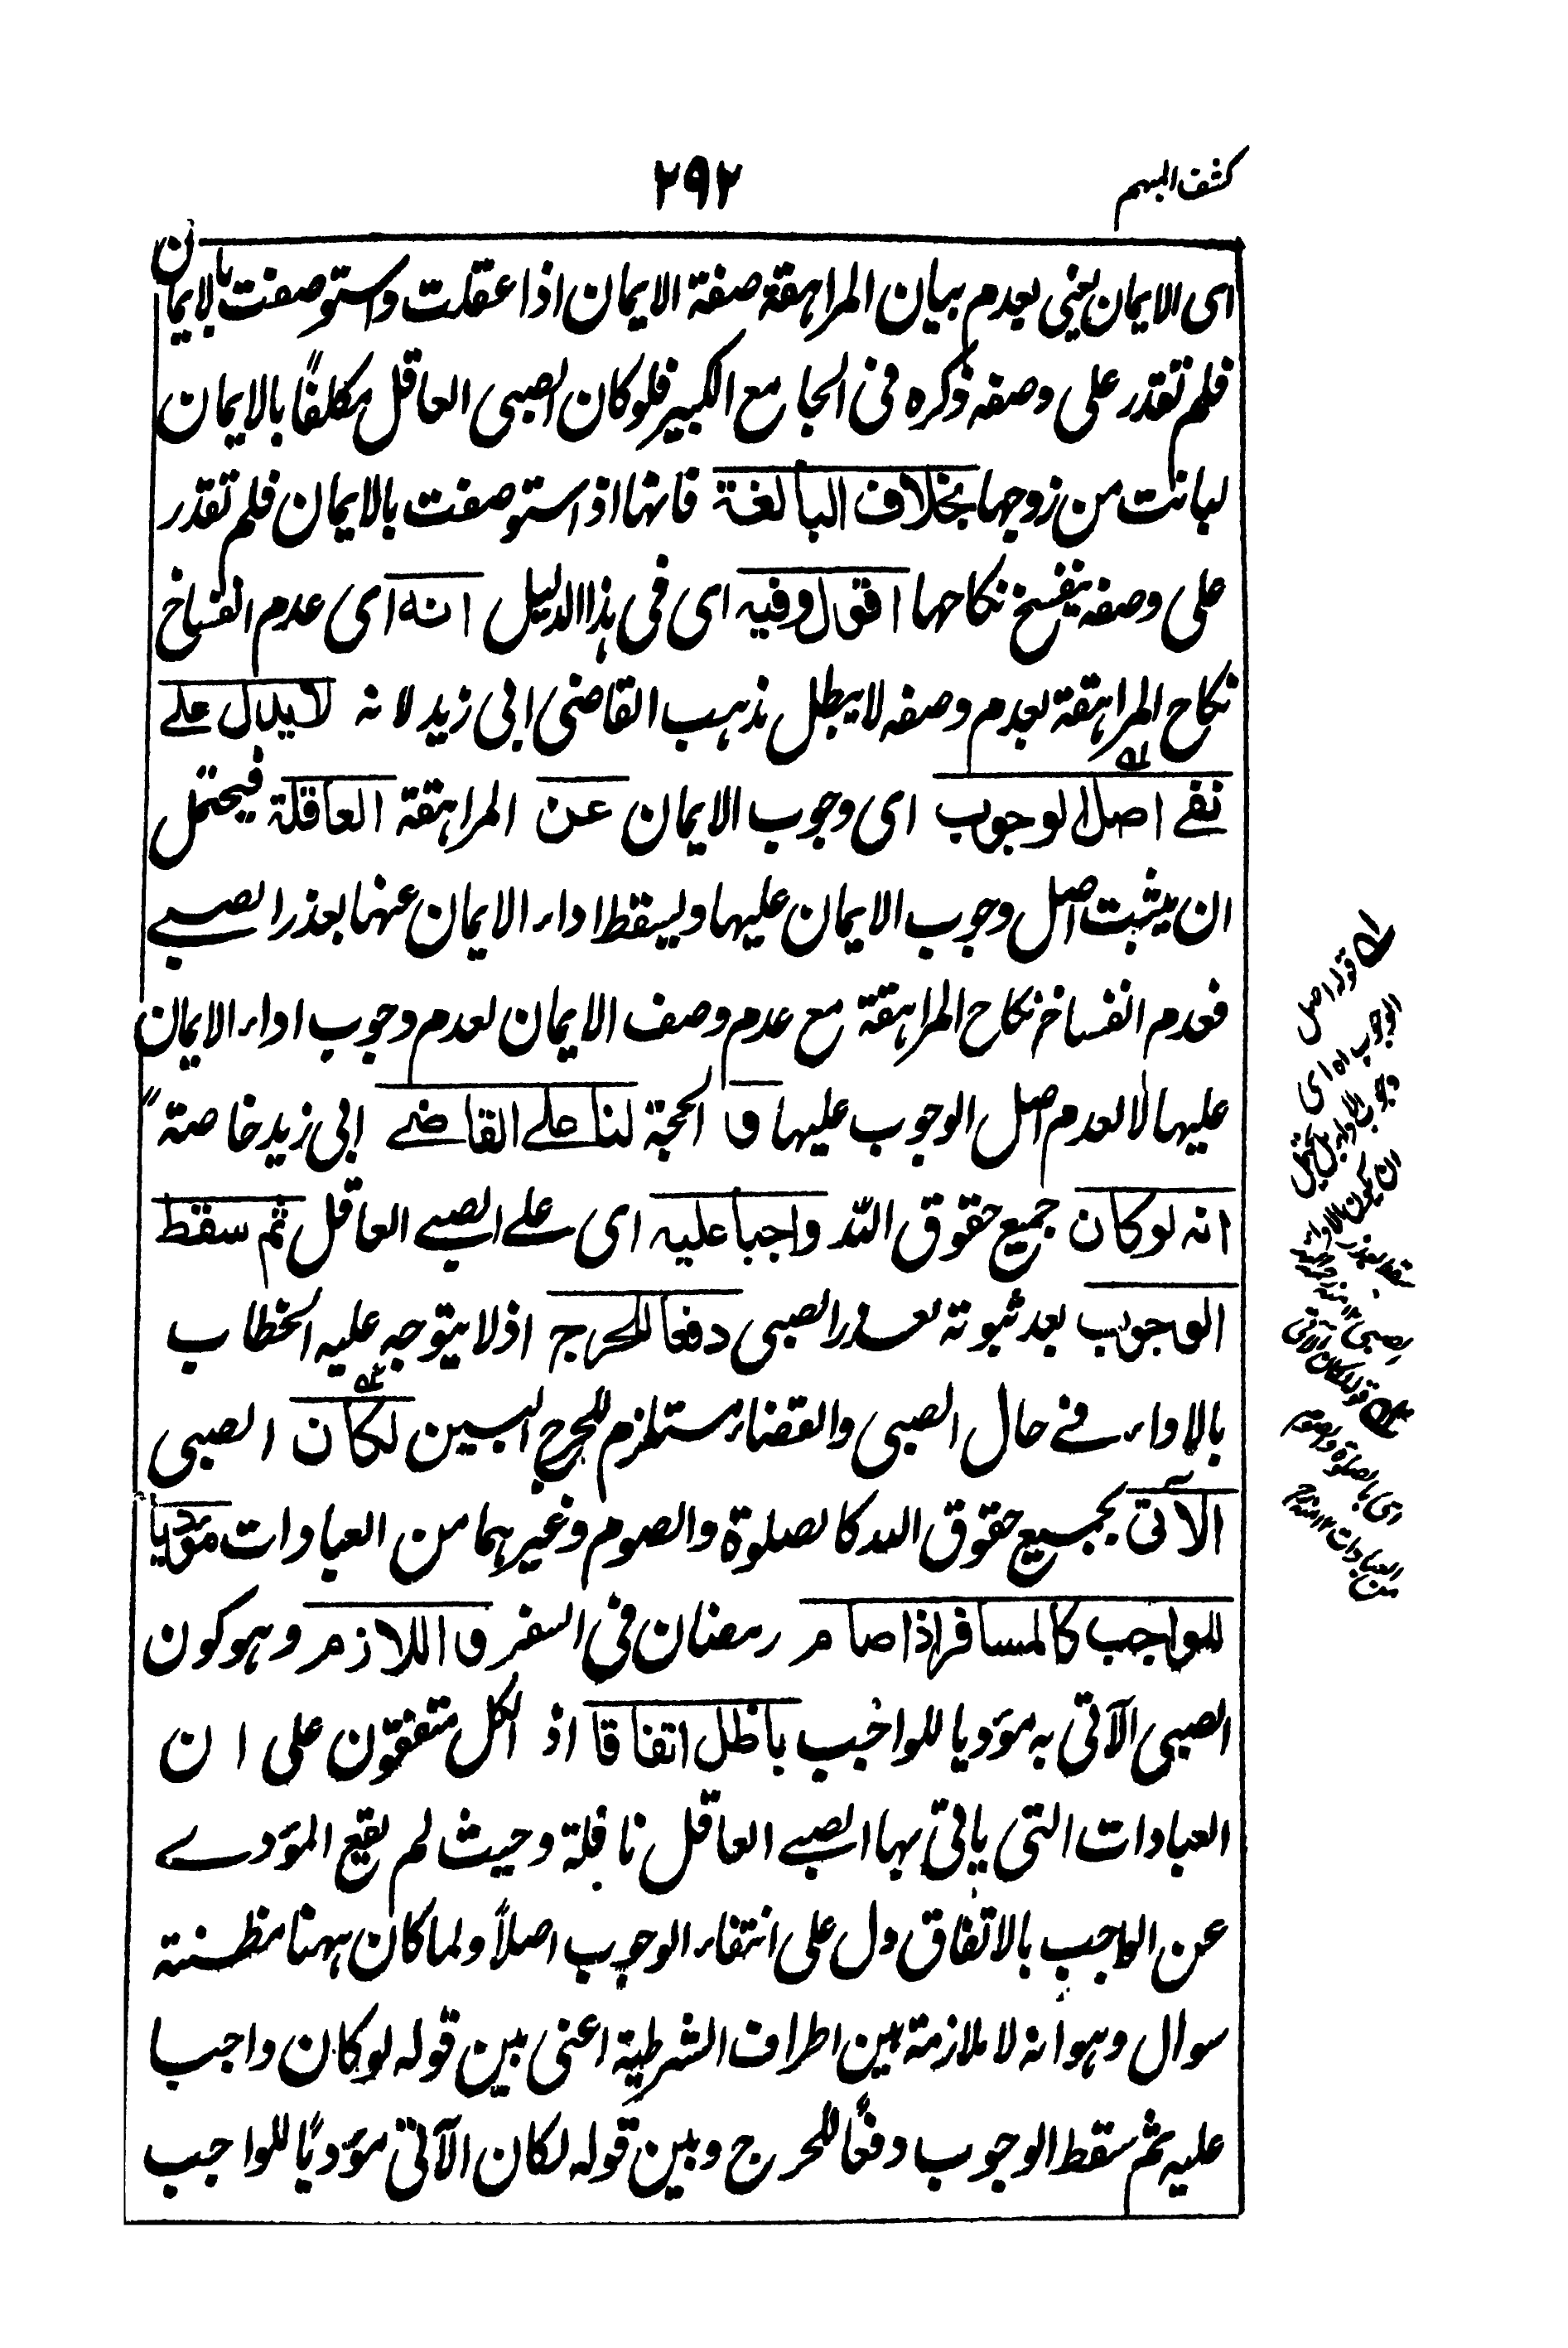 كشف المبهم
٢٩٢
اى الايمان يعنى بعدم بيان المراهقة صفة الايمان اذا عقلت واستوصفت بالايمان
فلم تقدر على وصفه ذكره فى الجامع الكبير فلو كان الصبى العاقل مكلفًا بالايمان
لبانت من زوجها بخلاف البالغة فانها اذا ستوصفت بالايمان فلم تقدر
على وصفه ينفسخ نكاحها اقول وفيه اى فى هذا الدليل انه اى عدم انفساخ
نكاح المراهقة بعدم وصفه لا يبطل مذهب القاضى ابى زيد لانه لا يدل على
نفے اصل الوجوب اى وجوب الايمان عن المراهقة العاقلة فيحتمل
ان يثبت اصل وجوب الايمان عليها ويسقط اداء الايمان عنها بعذر الصبے
فعدم انفساخ نكاح المراهقة مع عدم وصف الايمان لعدم وجوب اداء الايمان
عليها لا لعدم اصل الوجوب عليها و الحجة لنا علے القاضے ابى زيد خاصة
انه لو كان جميع حقوق الله واجبا عليه اى علے الصبے العاقل ثم سقط
الوجوب بعد ثبوته بعذر الصبى دفعا للحرج اذ لا يتوجه عليه الخطاب
بالاداء فے حال الصبى والقضاء مستلزم للحرج البين لكان الصبى
الآتى بجميع حقوق الله كالصلوة والصوم وغيرهما من العبادات مؤديا
للواجب كالمسافر اذا صام رمضان فى السفر و اللازم وهو كون
الصبى الآتى به مؤديا للواجب باطل اتفاقا اذ الكل متفقون على ان
العبادات التى ياتى بها الصبے العاقل نافلة وحيث لم يقع المؤدے
عن الواجب بالاتفاق دل على انتفاء الوجوب اصلاً ولما كان ههنا مظنته
سوال وهو انه لا ملازمة بين اطراف الشرطية اعنى بين قوله لو كان واجبا
عليه ثم سقط الوجوب دفعًا للحرج وبين قوله لكان الآتى مؤديًا للواجب
قوله اصل
الوجوب اه اى
وجوب الاداء بل يحتمل
ان يكون الاداء
الصبى ١٢
قوله لكان الآتى
اى بالصلوة والصوم
من العبادات ١٢